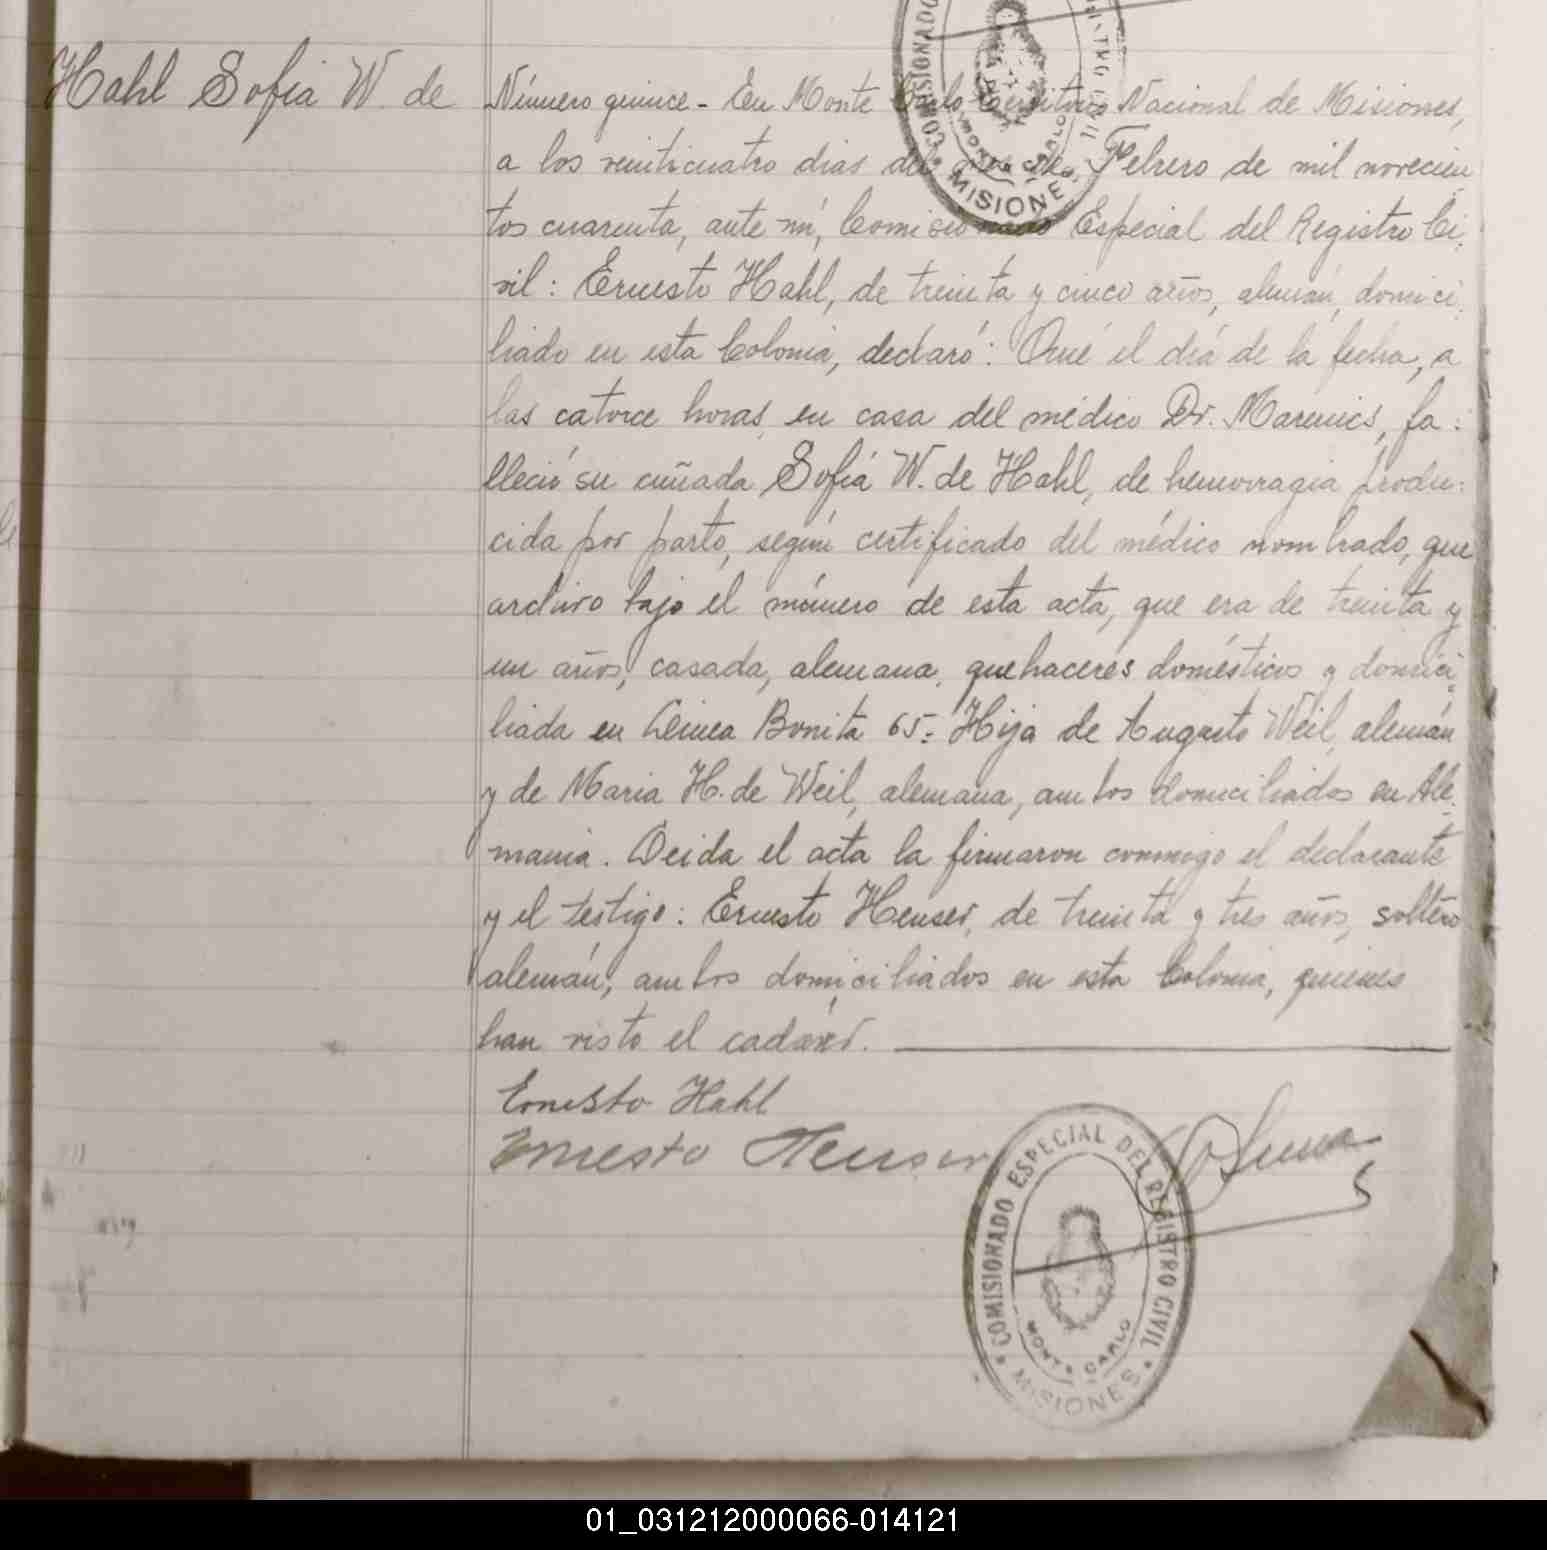 Hahl Sofia W. de
Número quince - En Monte Carlo Territorio Nacional de Misiones,
a los veinticuatro dias del mes de Febrero de mil novecien
tos cuarenta, ante mí, Comisionado Especial del Registro Ci-
vil: Ernesto Hahl, de treinta y cinco años, alemán, domici-
liado en esta Colonia, declaró: Qué el día de la fecha, a
las catorce horas, en casa del médico Dr. Marenics, fa:
lleció su cuñada Sofía W. de Hahl, de hemorragia produ:
cida por parto, según certificado del médico nombrado, que
archivo bajo el número de esta acta, que era de treinta y
un años, casada, alemana, quehaceres domésticos y domici-
liada en Linea Bonita 65- Hija de Augusto Weil, alemán
y de Maria H. de Weil, alemana, ambos domiciliados en Ale-
mania. Leida el acta la firmaron conmigo el declarante
y el testigo: Ernesto Heuser, de treinta y tres años, soltero
alemán, ambos domiciliados en esta Colonia, quienes
han visto el cadáver.
Ernesto Hahl
Ernesto Heuser
COMISIONADO ESPECIAL DEL REGISTRO CIVIL
MONTE CARLO
MISIONES
COMISIONADO
MONTE CARLO
MISIONES
01_031212000066-014121